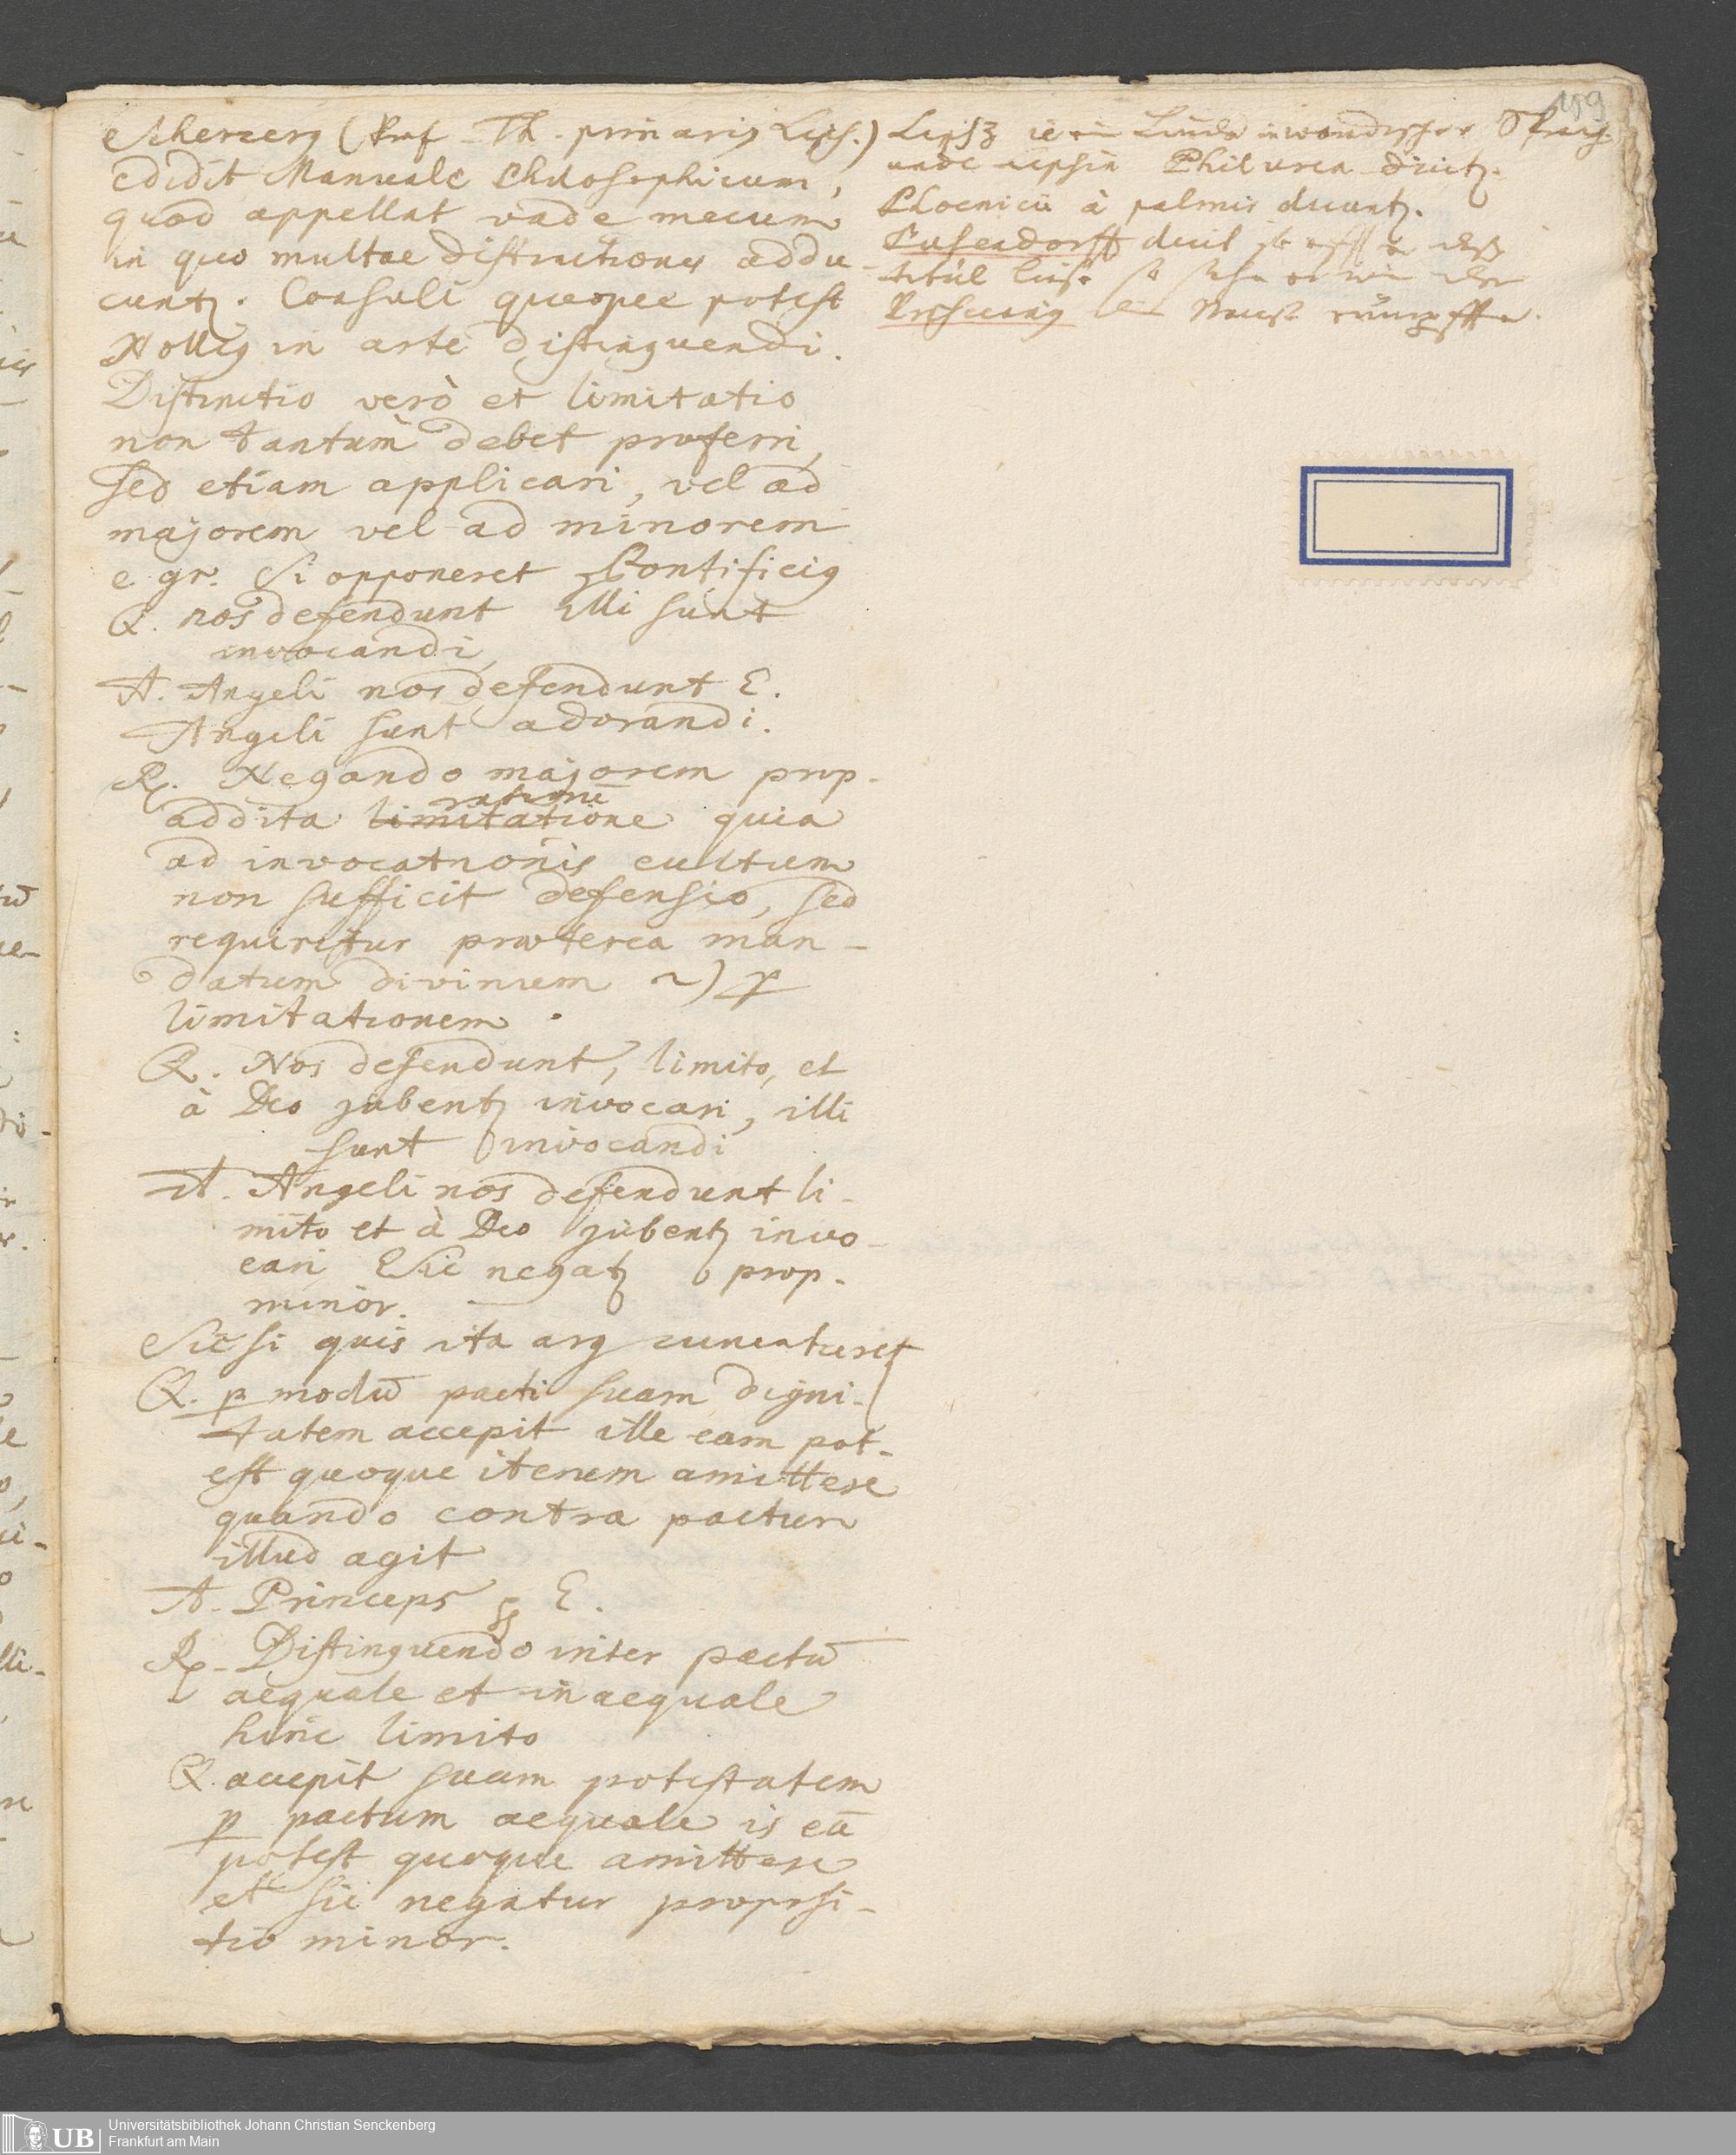 Scherzerg (Prof. Th. primarig Lips.)
edidit Manuale Philosophicum,
quod appellat vade mecum
in quo multae distinctiones addu-
cuntz. Consuli quoque potest
Nollig in arte distinguendi.
Distinctio verò et limitatio
non tantùm debet proferri,
sed etiam applicari, vel ad
majorem vel ad minorem
e. gr. Si opponeret Pontificig
Q. nos defendunt illi sunt
invocandi,
A. Angeli nos defendunt E.
Angeli sunt adorandi.
R. Negando majorem prop.
addita limitatione quia
ad invocationis cultum
non sufficit defensio, sed
requiritur praeterea man-
datum divinum 2) p
limitationem.
Q. Nos defendunt, limito, et
à Deo jubentz invocari, illi
sunt invocandi
A. Angeli nos defendunt li-
mito et à Deo jubentz invo-
cari Sic negatz prop.
minor.
Sic si quis ita argumentaret
Q. p modū pacti suam digni-
tatem accepit ille eam pot-
est quoque iterum amittere
quando contra pactum
illud agit
A. Princeps E.
R. Distinguendo inter pactū
aequale et inaequale
hinc limito
Q. accepit suam potestatem
p pactum aequale is eā
potest quoque amittere
et sic negatur proposi-
tio minor.
159
Leipz Linda in wondischer Sprach.
unde Lipsia Philurea dicitz.
Phoenicii à palmis dicuntz.
Pufendorff
titul
rümpffe.
Universitätsbibliothek Johann Christian Senckenberg
UB Frankfurt am Main